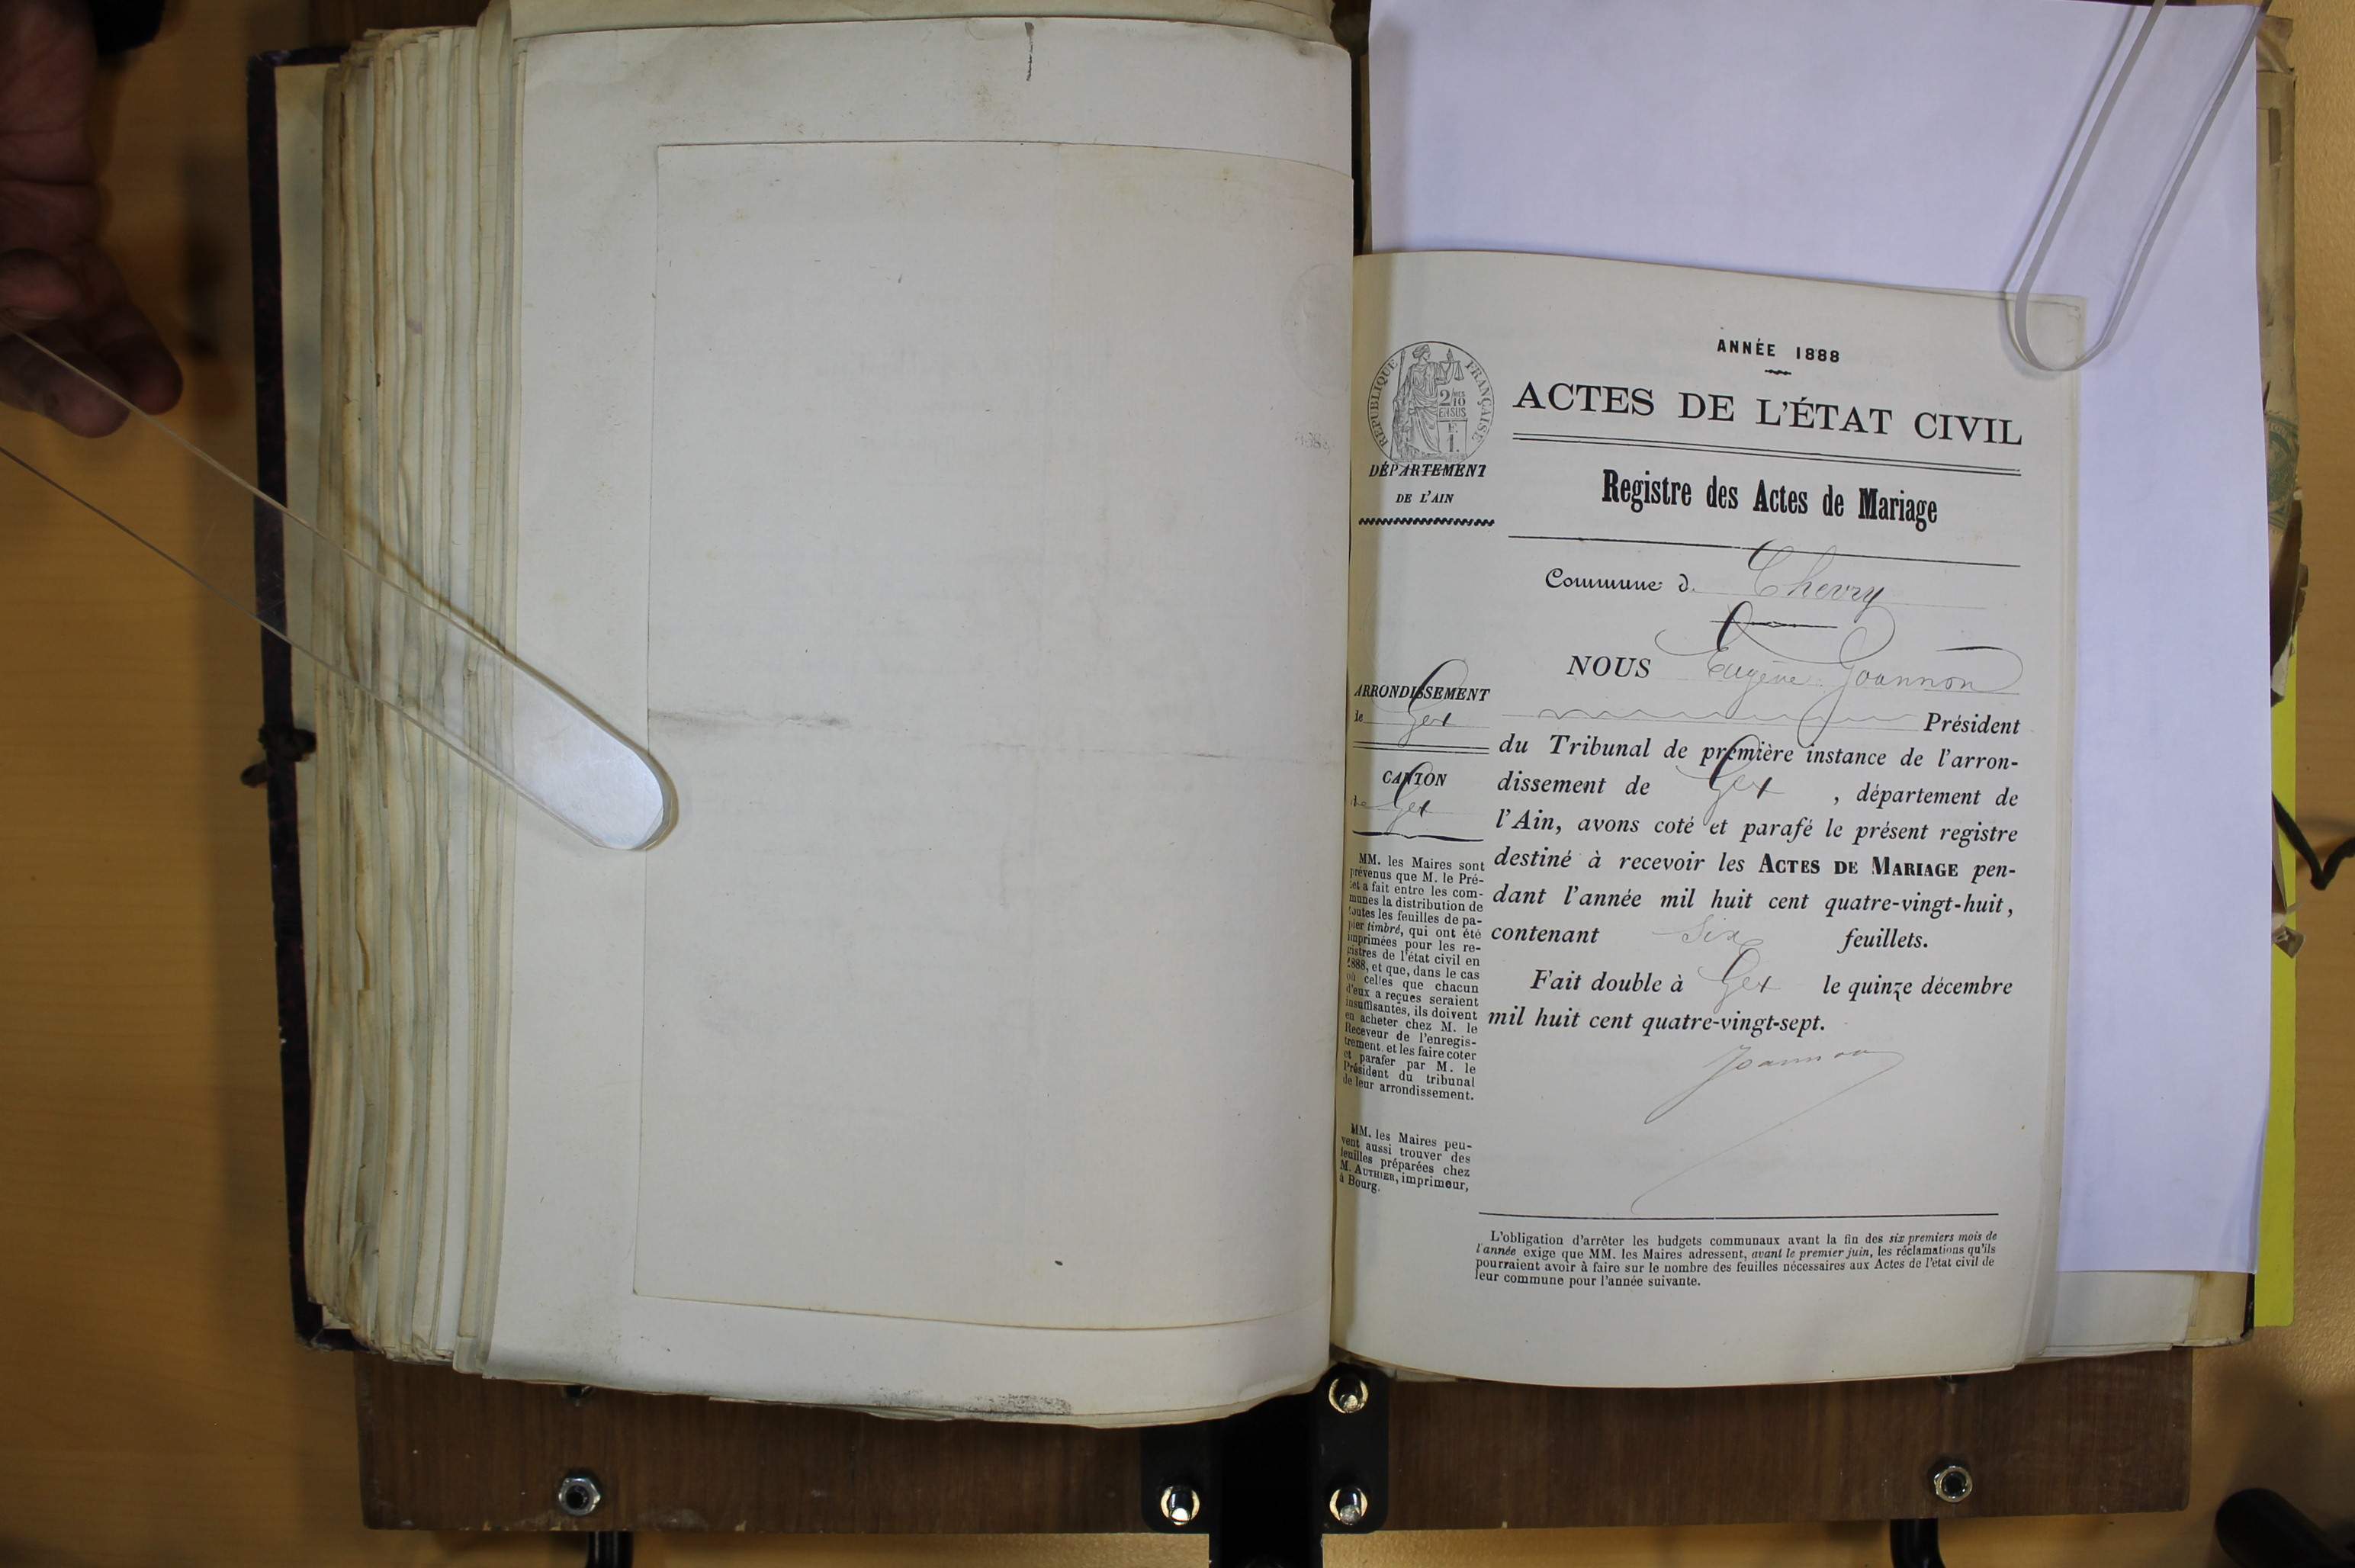 ANNÉE 1888
ACTES DE L'ÉTAT CIVIL
RÉPUBLIQUE FRANÇAISE
2/10
EN SUS
E
1.
DÉPARTEMENT
DE L'AIN
Registre des Actes de Mariage
Commune de Chevry
NOUS Eugène Joannon
Président
du Tribunal de première instance de l'arron-
dissement de Gex, département de
l'Ain, avons coté et parafé le présent registre
destiné à recevoir les ACTES DE MARIAGE pen-
dant l'année mil huit cent quatre-vingt-huit,
contenant six feuillets.
Fait double à Gex le quinze décembre
mil huit cent quatre-vingt-sept.
Joannon
ARRONDISSEMENT
de Gex
CANTON
de Gex
MM. les Maires sont
prévenus que M. le Pré-
fet a fait entre les com-
munes la distribution de
toutes les feuilles de pa-
pier timbré, qui ont été
imprimées pour les re-
gistres de l'état civil en
1888, et que, dans le cas
où celles que chacun
d'eux a reçues seraient
insuffisantes, ils doivent
en acheter chez M. le
Receveur de l'enregis-
trement et les faire coter
et parafer par M. le
Président du tribunal
de leur arrondissement.
MM. les Maires peu-
vent aussi trouver des
feuilles préparées chez
M. AUTHIER, imprimeur,
à Bourg.
L'obligation d'arrêter les budgets communaux avant la fin des six premiers mois de
l'année exige que MM. les Maires adressent, avant le premier juin, les réclamations qu'ils
pourraient avoir à faire sur le nombre des feuilles nécessaires aux Actes de l'état civil de
leur commune pour l'année suivante.